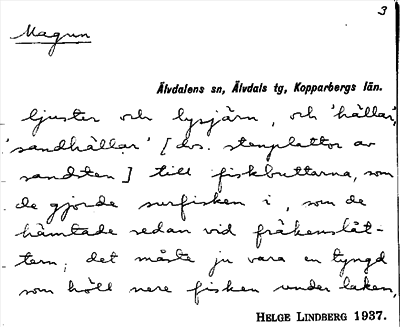 3
Magrun
Älvdalens sn, Älvdals tg, Kopparbergs län.
ljuster och lysjärn, och 'hällar',
'sandhällar' [dvs. stenplattor av
sandsten] till fiskbyttorna, som
de gjorde surfisken i, som de
hämtade sedan vid fräkenslåt-
tern; det måste ju vara en tyngd
som höll nere fisken under laken,
HELGE LINDBERG 1937.